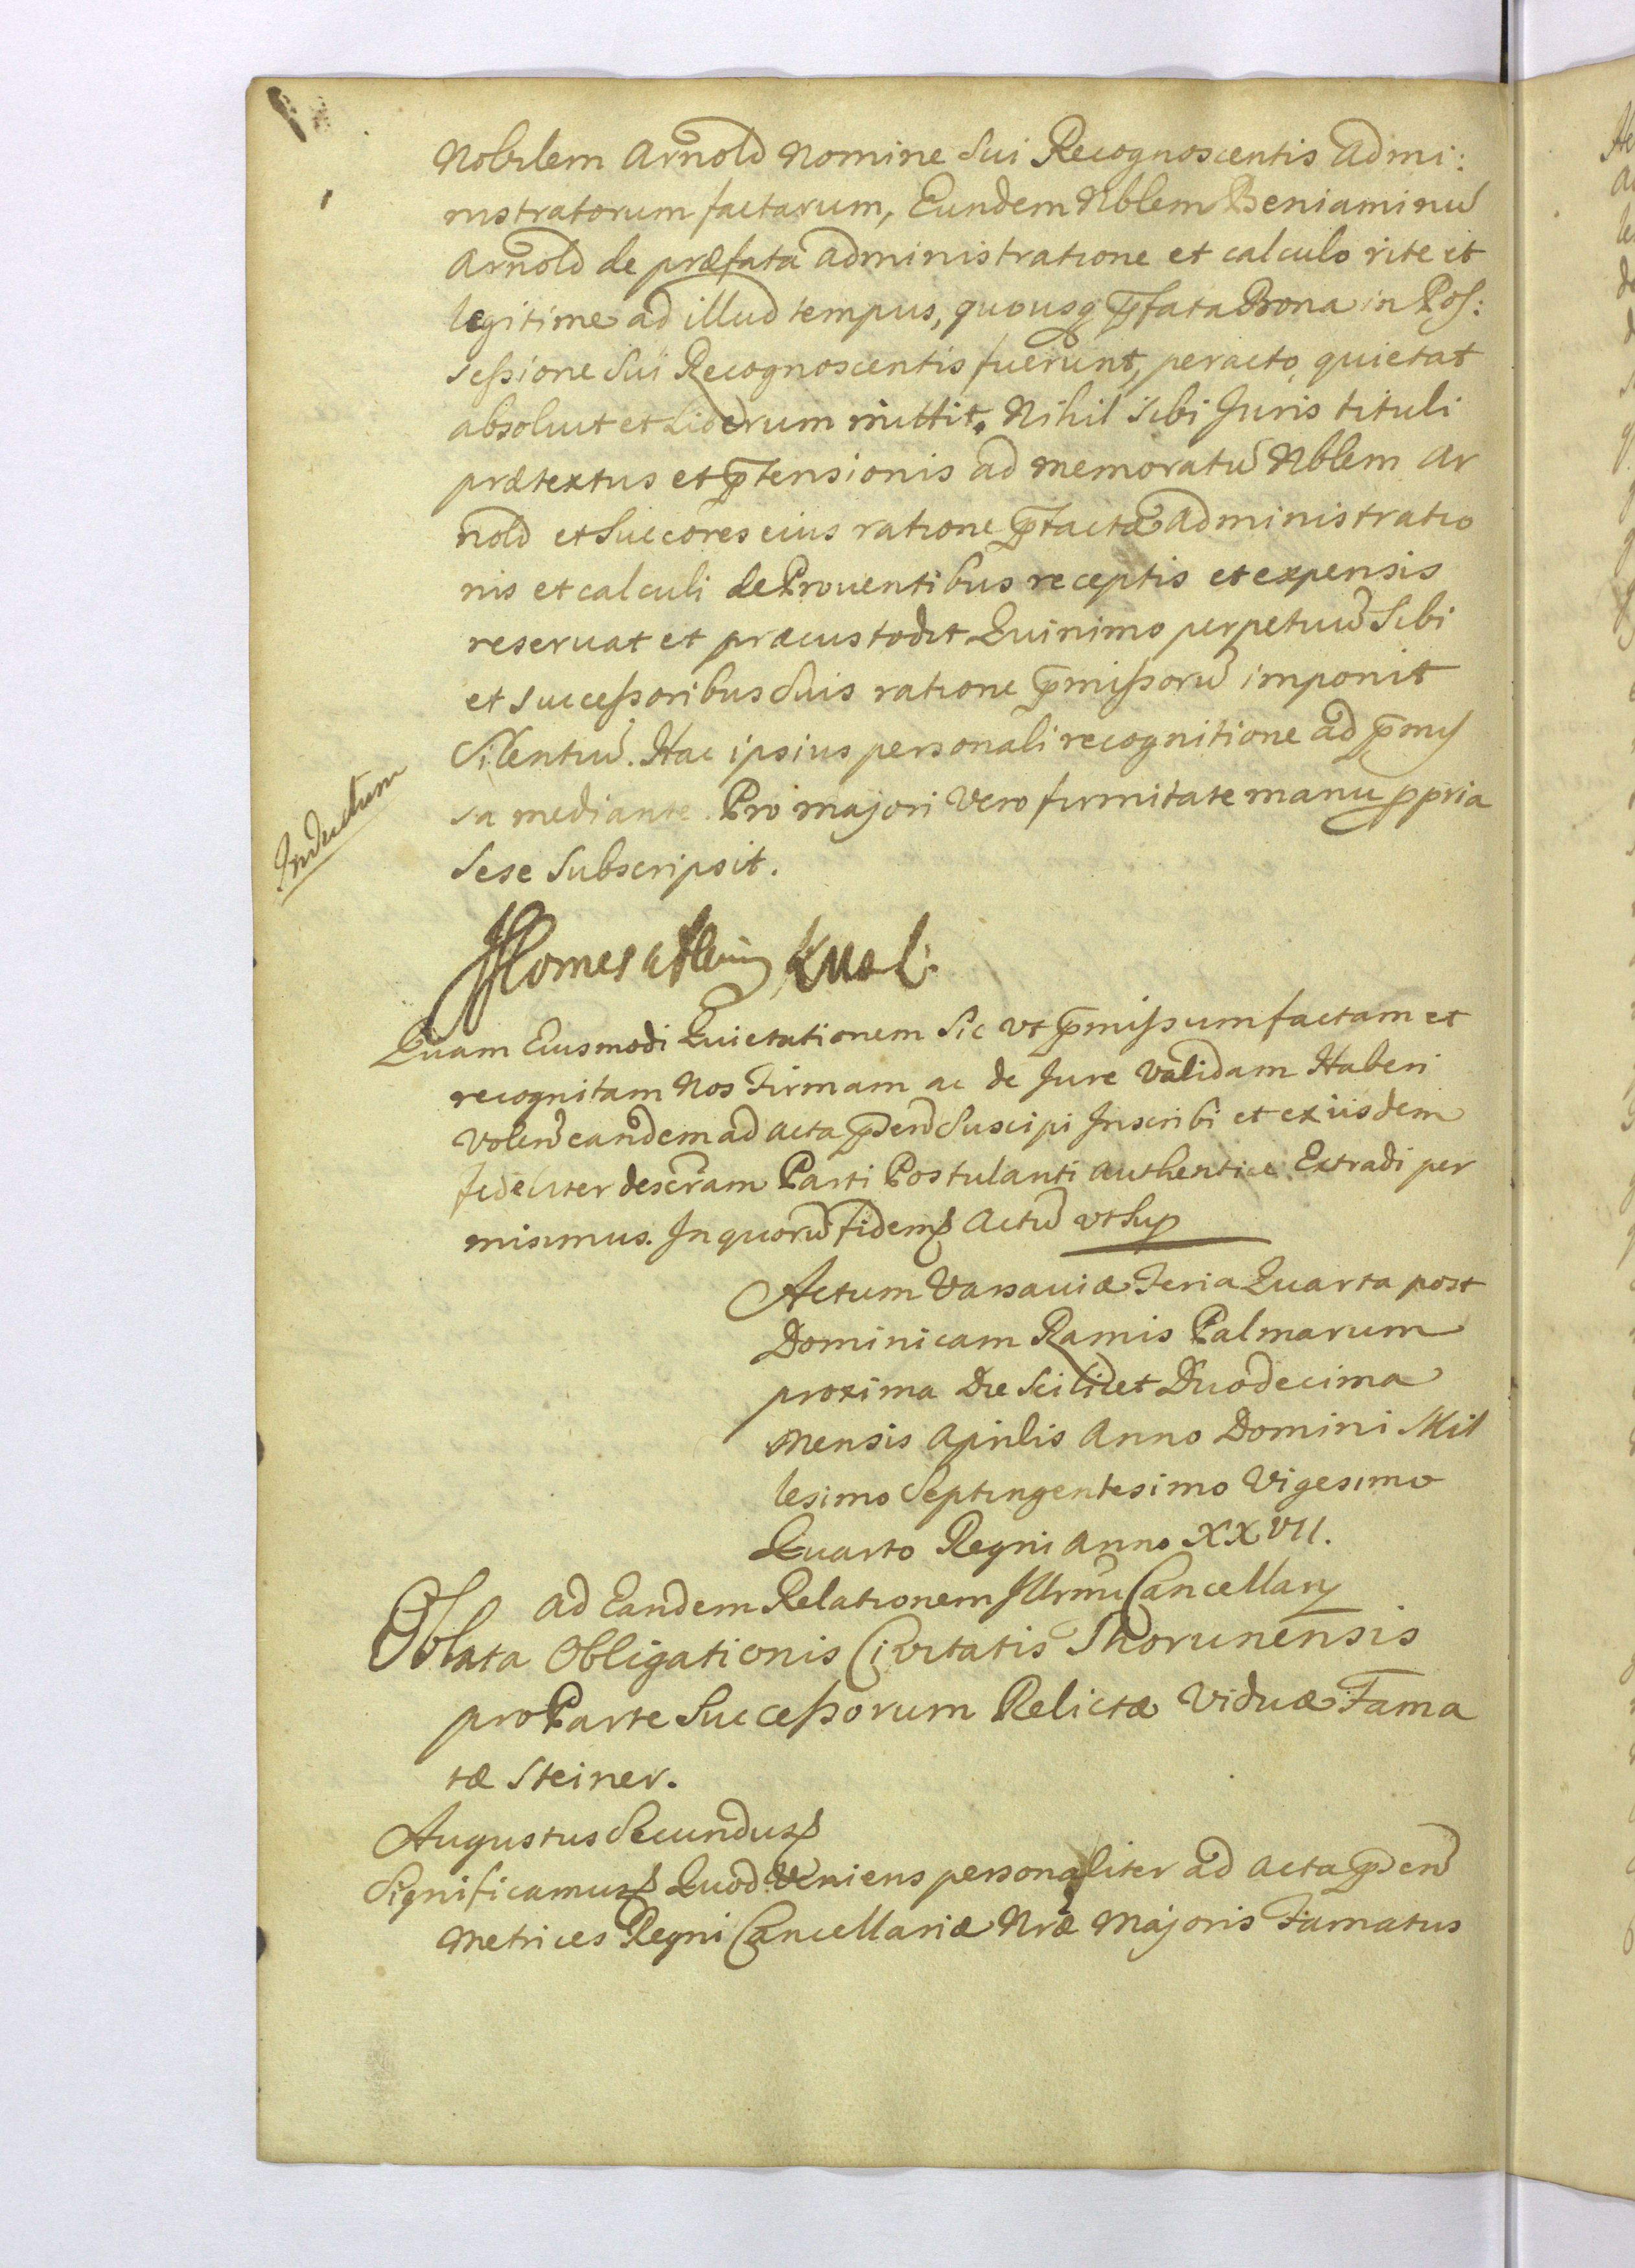 Nobilem Arnold Nomine Sui Recognoscentis Admi:
nistratorum factarum, Eundem Nblem Beniaminu͂
Arnold de præfata administratione et calculo rite et
legitime ad illud tempus, quousq p͞fata Bona in Pos:
sessione Sui Recognoscentis fuerunt, peracto, quietat
absoluit et Liberum mittit. Nihil Sibi Juris tituli
prætextus et p͞tensionis ad memoratu͂ Nblem Ar
nold et Succores eius ratione p͞factæ administratio
nis et calculi de Prouentibus receptis et expensis
reseruat et præcustodit Quinimo perpetuu͂ Sibi
et successoribus Suis ratione p͞missoru͂ imponit
Silentiu͂. Hac ipsius personali recognitione ad p͞mis
sa mediante. Pro majori Vero firmitate manu ppria
Sese Subscripsit.
Inductum
Quam Eiusmodi Quietationem Sic vt p͞missum factam et
recognitam Nos Firmam ac de Jure Validam Haberi
Volen͂ eandem ad acta p͞sen͂ Suscipi Inscribi et ex iisdem
fideliter descr͂am Parti Postulanti authentice Extradi per
misimus. In quoru͂ fidem Actu͂ vt Sup
Actum Varsauiæ Feria Quarta post
Dominicam Ramis Palmarum
proxima Die Scilicet Duodecima
Mensis Aprilis Anno Domini Mil
lesimo Septingentesimo Vigesimo
Quarto Regni Anno XXVII.
Ad Eandem Relationem Illrmi Cancellarij
Oblata Obligationis Ciuitatis Thorunensis
pro Parte Successorum Relictæ Viduæ Fama
tæ Steiner.
Augustus Secundus
Significamus Quod Veniens personaliter ad Acta p͞sen͂
Metrices Regni Cancellariæ Nræ Majoris Famatus